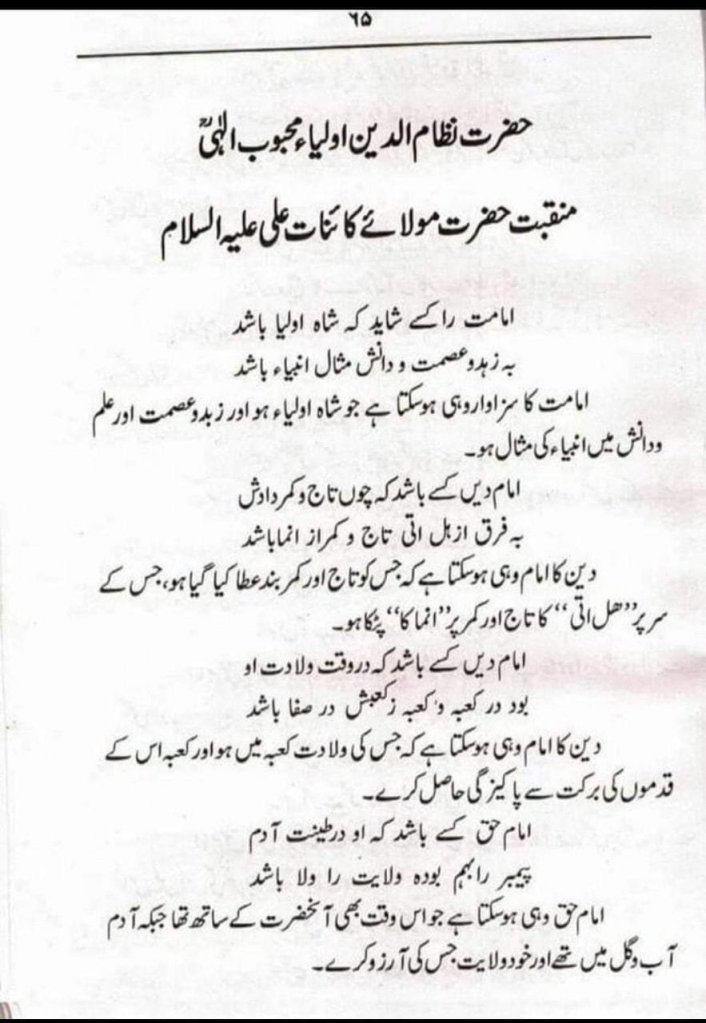 ۶۵
حضرت نظام الدین اولیاء محبوب الٰہیؒ
منقبت حضرت مولائے کائنات علی علیہ السلام
امامت را کسے شاید کہ شاہ اولیا باشد
بہ زہد و عصمت و دانش مثال انبیاء باشد
امامت کا سزاوار وہی ہوسکتا ہے جو شاہ اولیاء ہو اور زہد و عصمت اور علم
ودانش میں انبیاء کی مثال ہو۔
امام دیں کسے باشد کہ چوں تاج و کمر دادش
بہ فرق از ہل اتی تاج و کمر از انما باشد
دین کا امام وہی ہوسکتا ہے کہ جس کو تاج اور کمر بند عطا کیا گیا ہو، جس کے
سر پر ’’ھل اتی‘‘ کا تاج اور کمر پر ’’انما کا‘‘ پٹکا ہو۔
امام دیں کسے باشد کہ در وقت ولادت او
بود در کعبہ و کعبہ ز کعبش در صفا باشد
دین کا امام وہی ہوسکتا ہے کہ جس کی ولادت کعبہ میں ہو اور کعبہ اس کے
قدموں کی برکت سے پاکیزگی حاصل کرے۔
امام حق کسے باشد کہ او در طینت آدم
پیمبر را بہم بودہ ولایت را ولا باشد
امام حق وہی ہوسکتا ہے جو اس وقت بھی آنحضرت کے ساتھ تھا جبکہ آدم
آب و گل میں تھے اور خود ولایت جس کی آرزو کرے۔